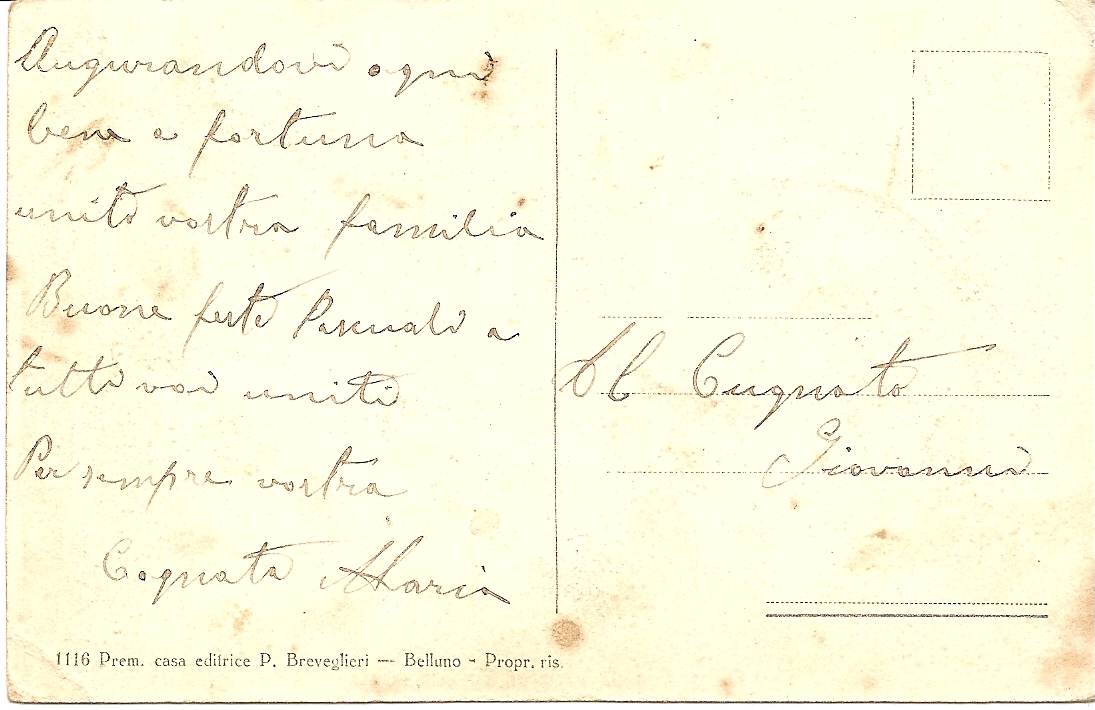 Augurandovi ogni
bene e fortuna
uniti vostra familia
Buone feste Pascuali a
tutti voi uniti
Per sempre vostra
Cognata Maria
Al Cugnato
Giovanni
1116 Prem. casa editrice P. Breveglieri — Belluno - Propr. ris.